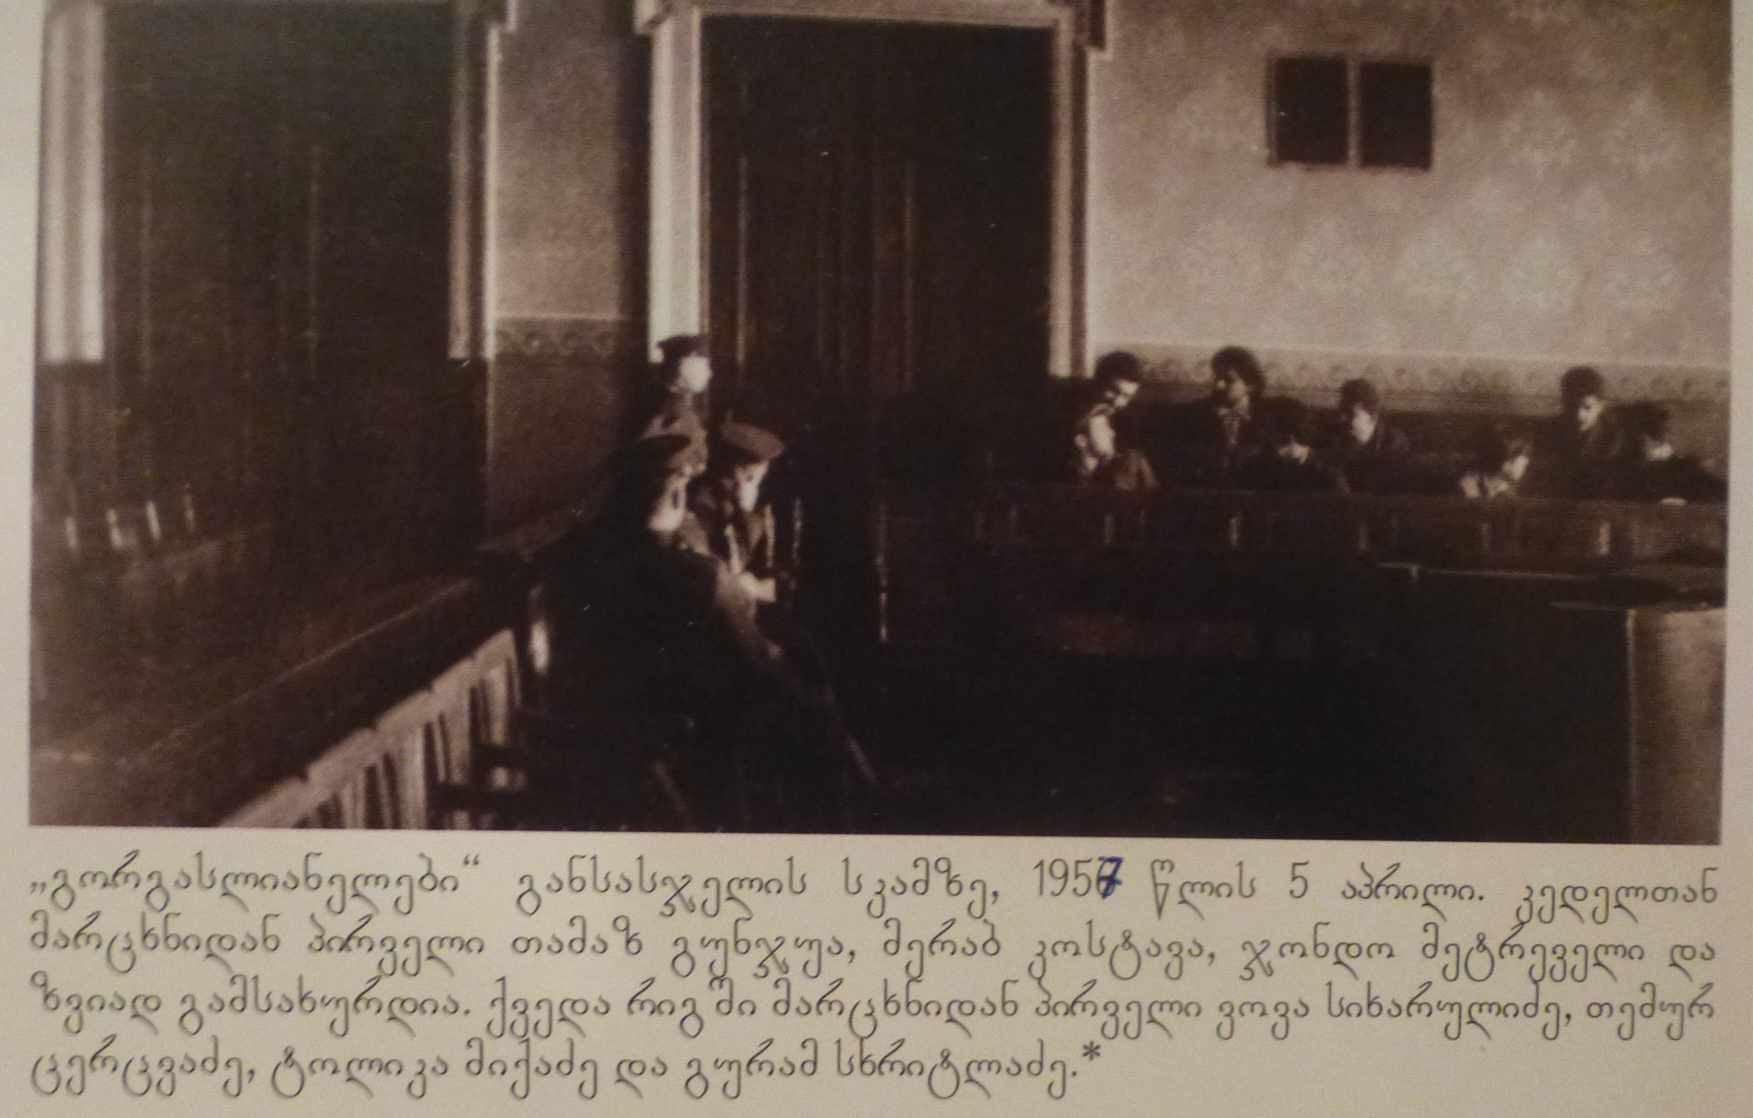 „გორგასლიანელები“ განსასჯელის სკამზე, 1957 წლის 5 აპრილი. კედელთან
მარცხნიდან პირველი თამაზ გუნჯუა, მერაბ კოსტავა, ჯონდო მეტრეველი და
ზვიად გამსახურდია. ქვედა რიგში მარცხნიდან პირველი ვოვა სიხარულიძე, თემურ
ცერცვაძე, ტოლიკა მიქაძე და გურამ სხრიტლაძე.*